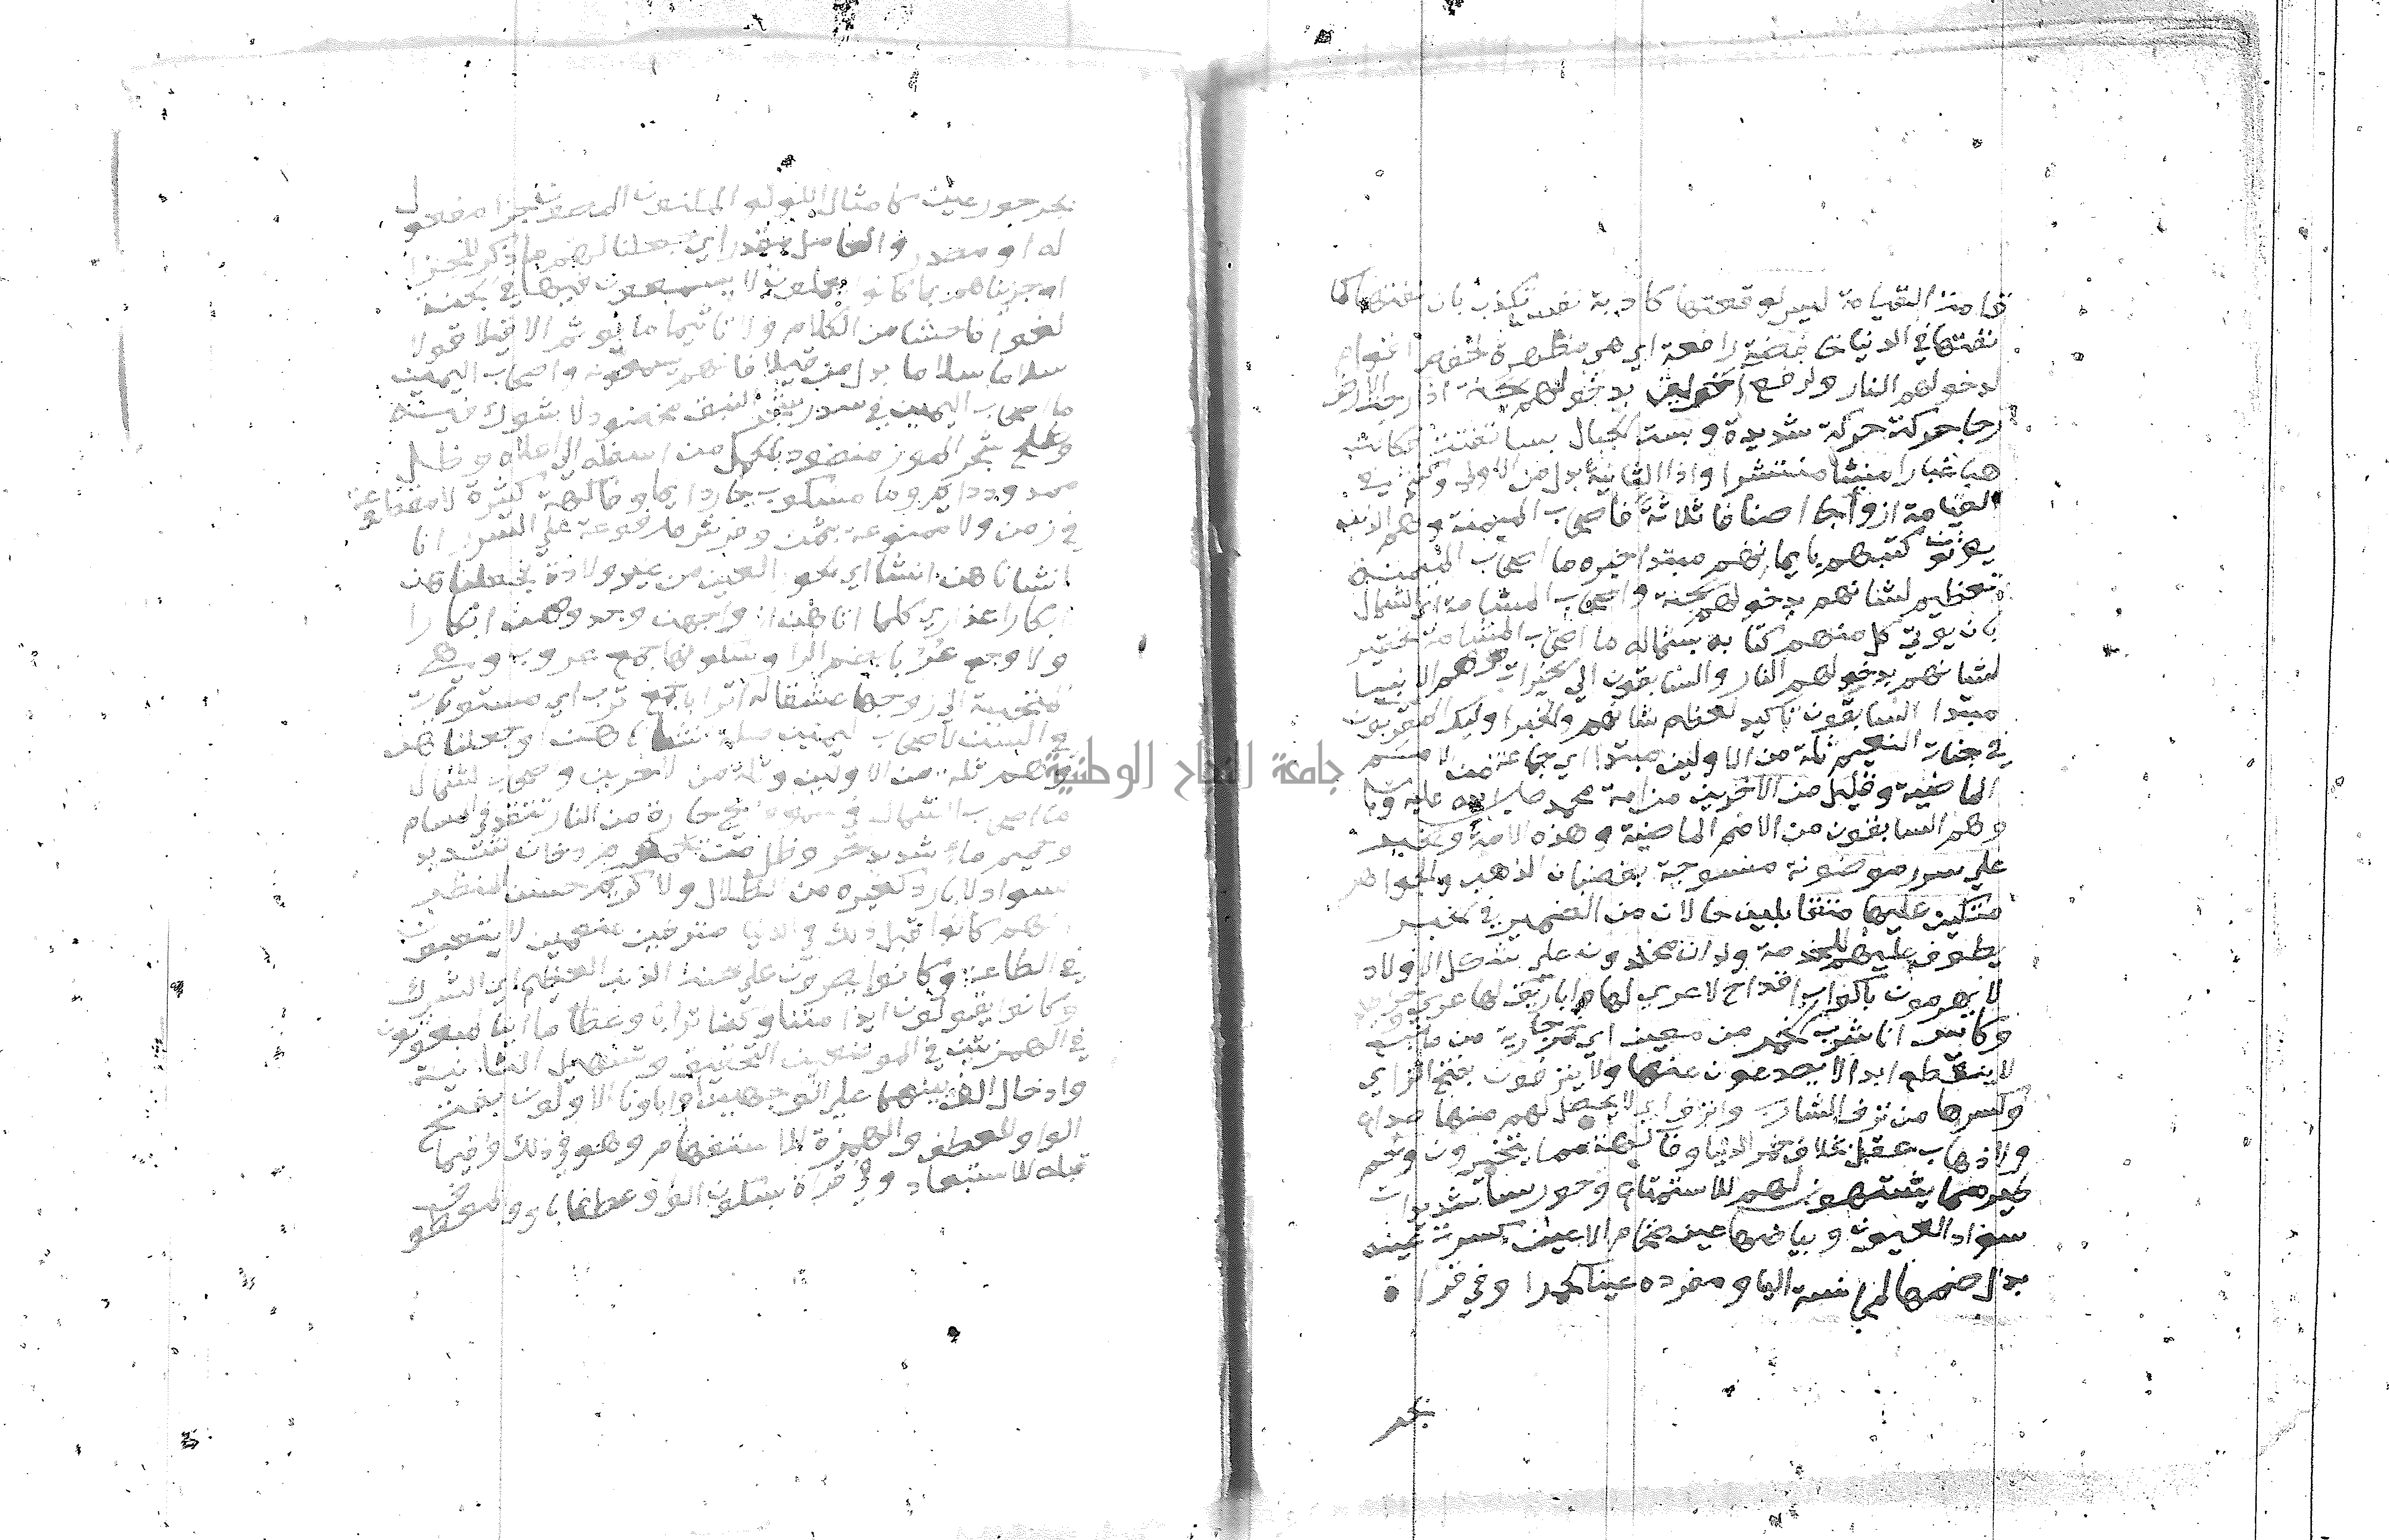 قامت القيامة ليس لوقعتها كاذبة نفس تكذب بان تنفيها كما
نفتها في الدنيا خافضة رافعة اي هي مظهرة لخفض اقوام
لدخولهم النار ولرفع اخرين بدخولهم الجنة اذا رجت الارض
رجا حركت حركة شديدة وبست الجبال بسا فتتت فكانت
هبا غبارا منبثا منتشرا واذا الثانية بدل من الاولي وكنتم في
القيامة ازواجا اصنافا ثلاثة فاصحاب الميمنة وهم الذين
يوتون كتبهم بايمانهم مبتدا خبره ما اصحاب الميمنة
تعظيم لشانهم بدخولهم الجنة واصحاب المشامة اي الشمال
بان يوتي كل منهم كتابه بشماله ما اصحاب المشامة تحقير
لشانهم بدخولهم النار والسابقون الي الخيرات وهم الانبيا
مبتدا السابقون تاكيد لعظم شانهم والخبر اوليك المقربون
في جنات النعيم ثلة من الاولين مبتدا اي جماعة من الامم
الماضية وقليل من الاخرين من امة محمد صلي الله عليه وسلم
وهم السابقون من الامم الماضية وهذه الامة والخبر
علي سرر موضونة منسوجة بقضبان الذهب والجواهر
متكين عليها متقابلين حالان من الضمير في الخبر
يطوف عليهم للخدمة ولدان مخلدون علي شكل الاولاد
لا يهرمون باكواب اقداح لا عري لها واباريق لها عري وخراطيم
وكاس انا شرب الخمر من معين اي خمر جارية من منبع
لا ينقطع ابدا لا يصدعون عنها ولا ينزفون بفتح الزاي
وكسرها من نزف الشارب وانزف اي لا يحصل لهم منها صداع
ولا ذهاب عقل بخلاف خمر الدنيا وفاكهة مما يتخيرون ولحم
طير مما يشتهون لهم للاستمتاع وحور نسا شديدات
سواد العيون وبياضها عين ضخام الاعين كسرت عينه
بدل ضمها لمجانسة اليا ومفرده عينا كحمرا وفي قراة
بجر
بجر حور عين كامثال اللولو المكنون المصون جزا مفعول
له او مصدر والعامل مقدر اي جعلنا لهم ما ذكر للجزا
او جزيناهم بما كانوا يعملون لا يسمعون فيها في الجنة
لغوا فاحشا من الكلام ولا تاثيما ما يوثم الا قيلا قولا
سلاما سلاما بدل من قيلا فانهم يسمعونه واصحاب اليمين
ما اصحاب اليمين في سدر شجر النبق مخضود لا شوك فيه
وطلح شجر الموز منضود بالحمل من اسفله الي اعلاه وظل
ممدود دايم وما مسكوب جار دايما وفاكهة كثيرة لا مقطوعة
في زمن ولا ممنوعة بثمن وفرش مرفوعة علي السرر انا
انشاناهن انشا اي الحور العين من غير ولادة فجعلناهن
ابكارا عذاري كلما اتاهن ازواجهن وجدوهن ابكارا
ولا وجع عربا بضم الرا وسكونها جمع عروب وهي
المتحببة الي زوجها عشقا له اترابا جمع ترب اي مستويات
في السن لاصحاب اليمين صلة انشاناهن او جعلناهن
وهم ثلة من الاولين وثلة من الاخرين واصحاب الشمال
ما اصحاب الشمال في سموم ريح حارة من النار تنفذ في المسام
وحميم ماء شديد الحر وظل من يحموم دخان شديد
السواد لا بارد كغيره من الظلال ولا كريم حسن المنظر
انهم كانوا قبل ذلك في الدنيا مترفين منعمين لا يتعبون
في الطاعة وكانوا يصرون علي الحنث الذنب العظيم اي الشرك
وكانوا يقولون ايذا متنا وكنا ترابا وعظاما اينا لمبعوثون
في الهمزتين في الموضعين التحقيق وتسهيل الثانية
وادخال الف بينهما علي الوجهين اواباونا الاولون بفتح
الواو للعطف والهمزة للاستفهام وهو في ذلك وفيما
قبله للاستبعاد وفي قراة بسكون الواو عطفا باو والمعطوف
جامعة النجاح الوطنية